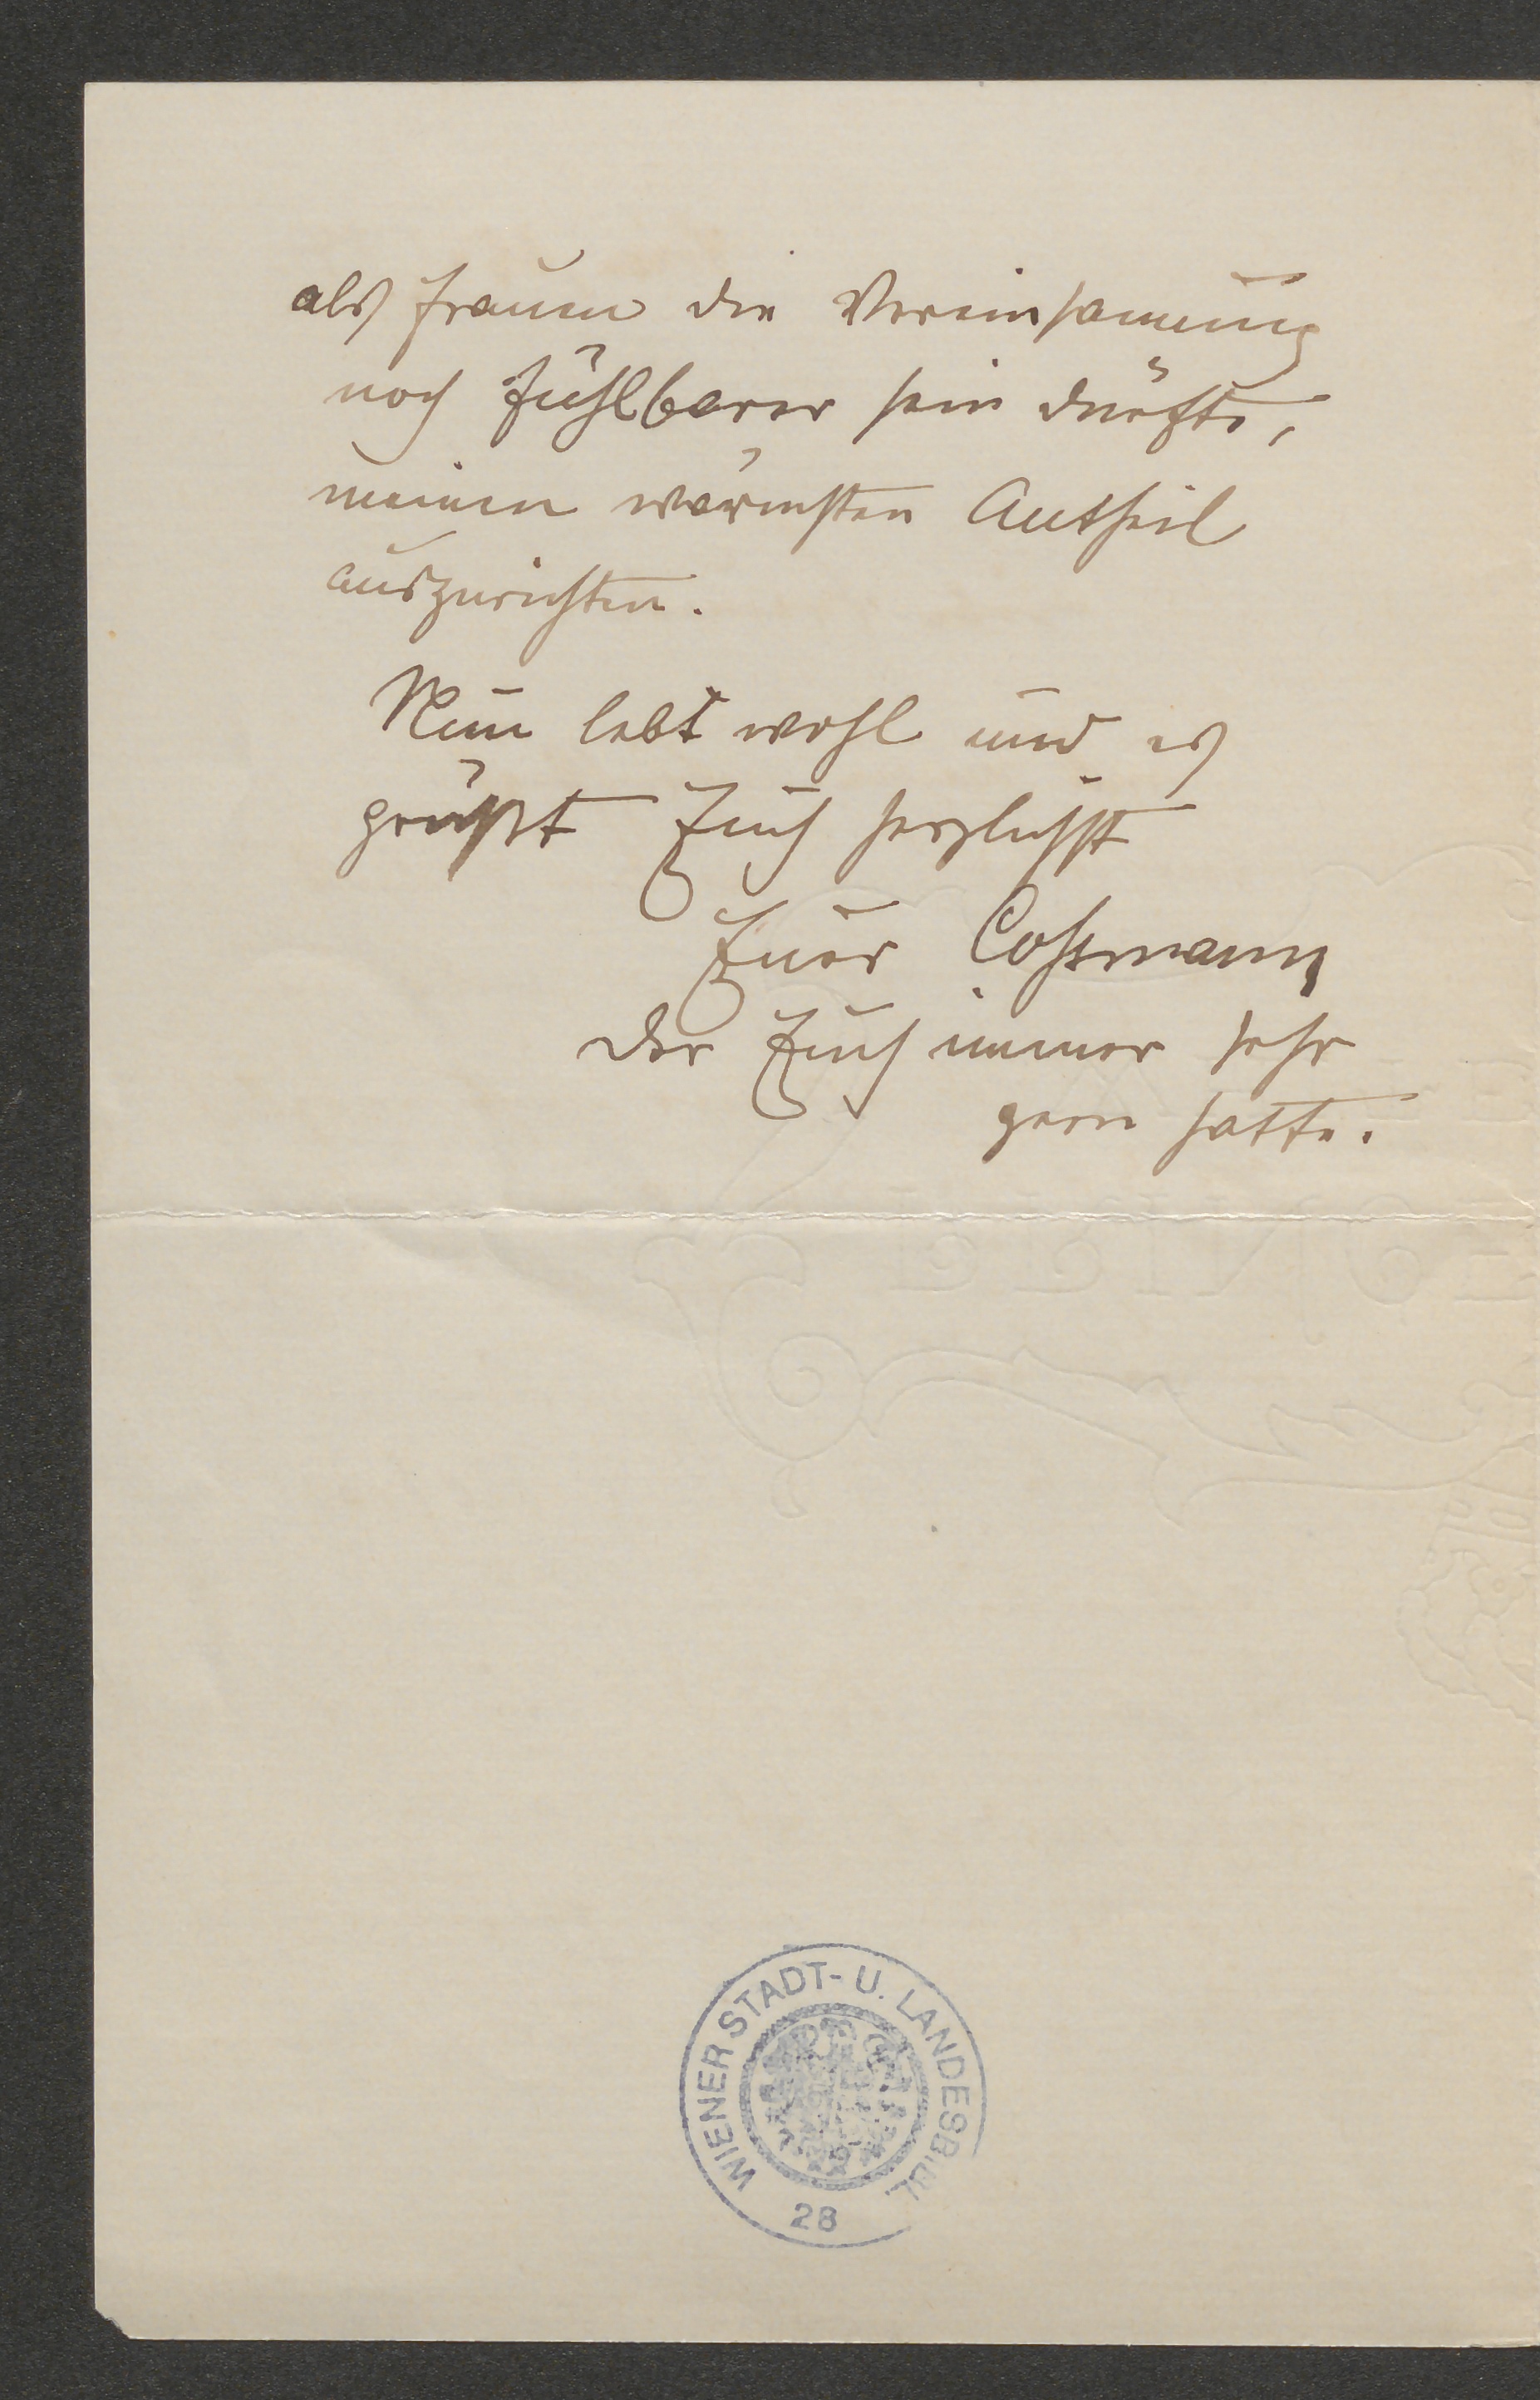 als Frauen die Vereinsamung
noch fühlbarer sein dürfte,
meinen wärmsten Antheil
auszurichten.
Nun lebt wohl und es
grüßt Euch herzlichst
Euer Coßmann
der Euch immer sehr
gern hatte.
WIENER STADT- U. LANDESBIBL
28